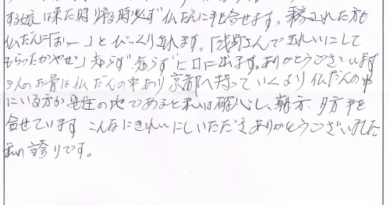 する娘は来た時 帰る時 必ず 仏だんに手を合せます。来られた方も
仏だんに「おぉー」と びっくりされます。「浅野さんで きれいにして
もらったがやぜ」知らず 知らず ヒ口に出ます。ありがとうございます
の人のお骨は 仏だんの中より 京都へ持っていくより 仏だんの中
にいる方が 最在の地であると 私は確心し、朝方、夕方 手を
合せています こんなにきれいにしいただき ありがとうございました
私の誇りです。